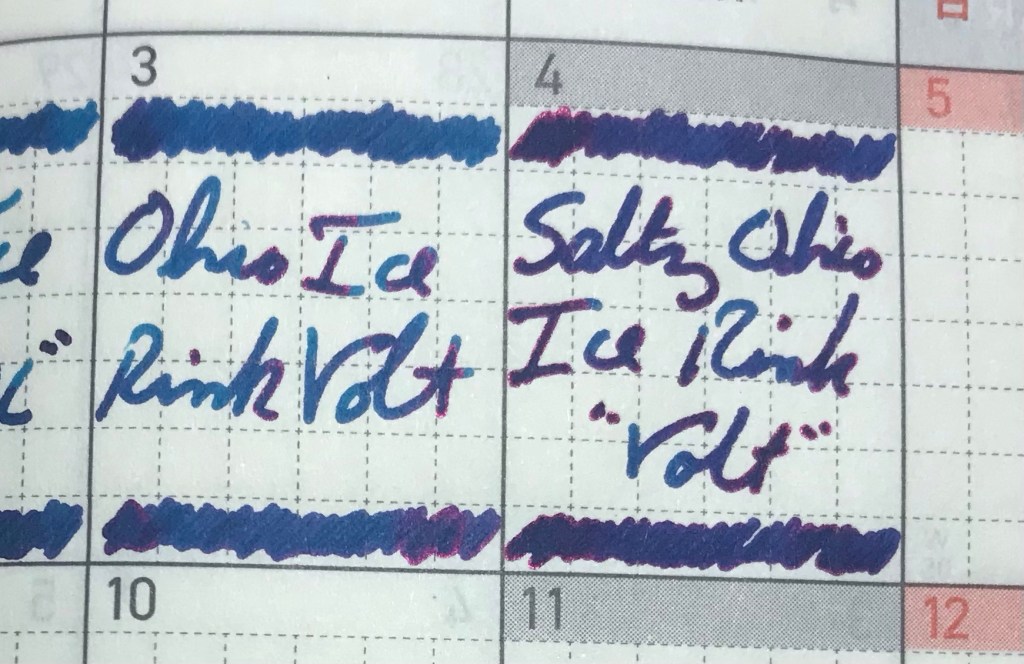 日
3
4
5
Ohio Ice
Rink Volt
Salty Ohio
Ice Rink
"Volt"
10
11
12